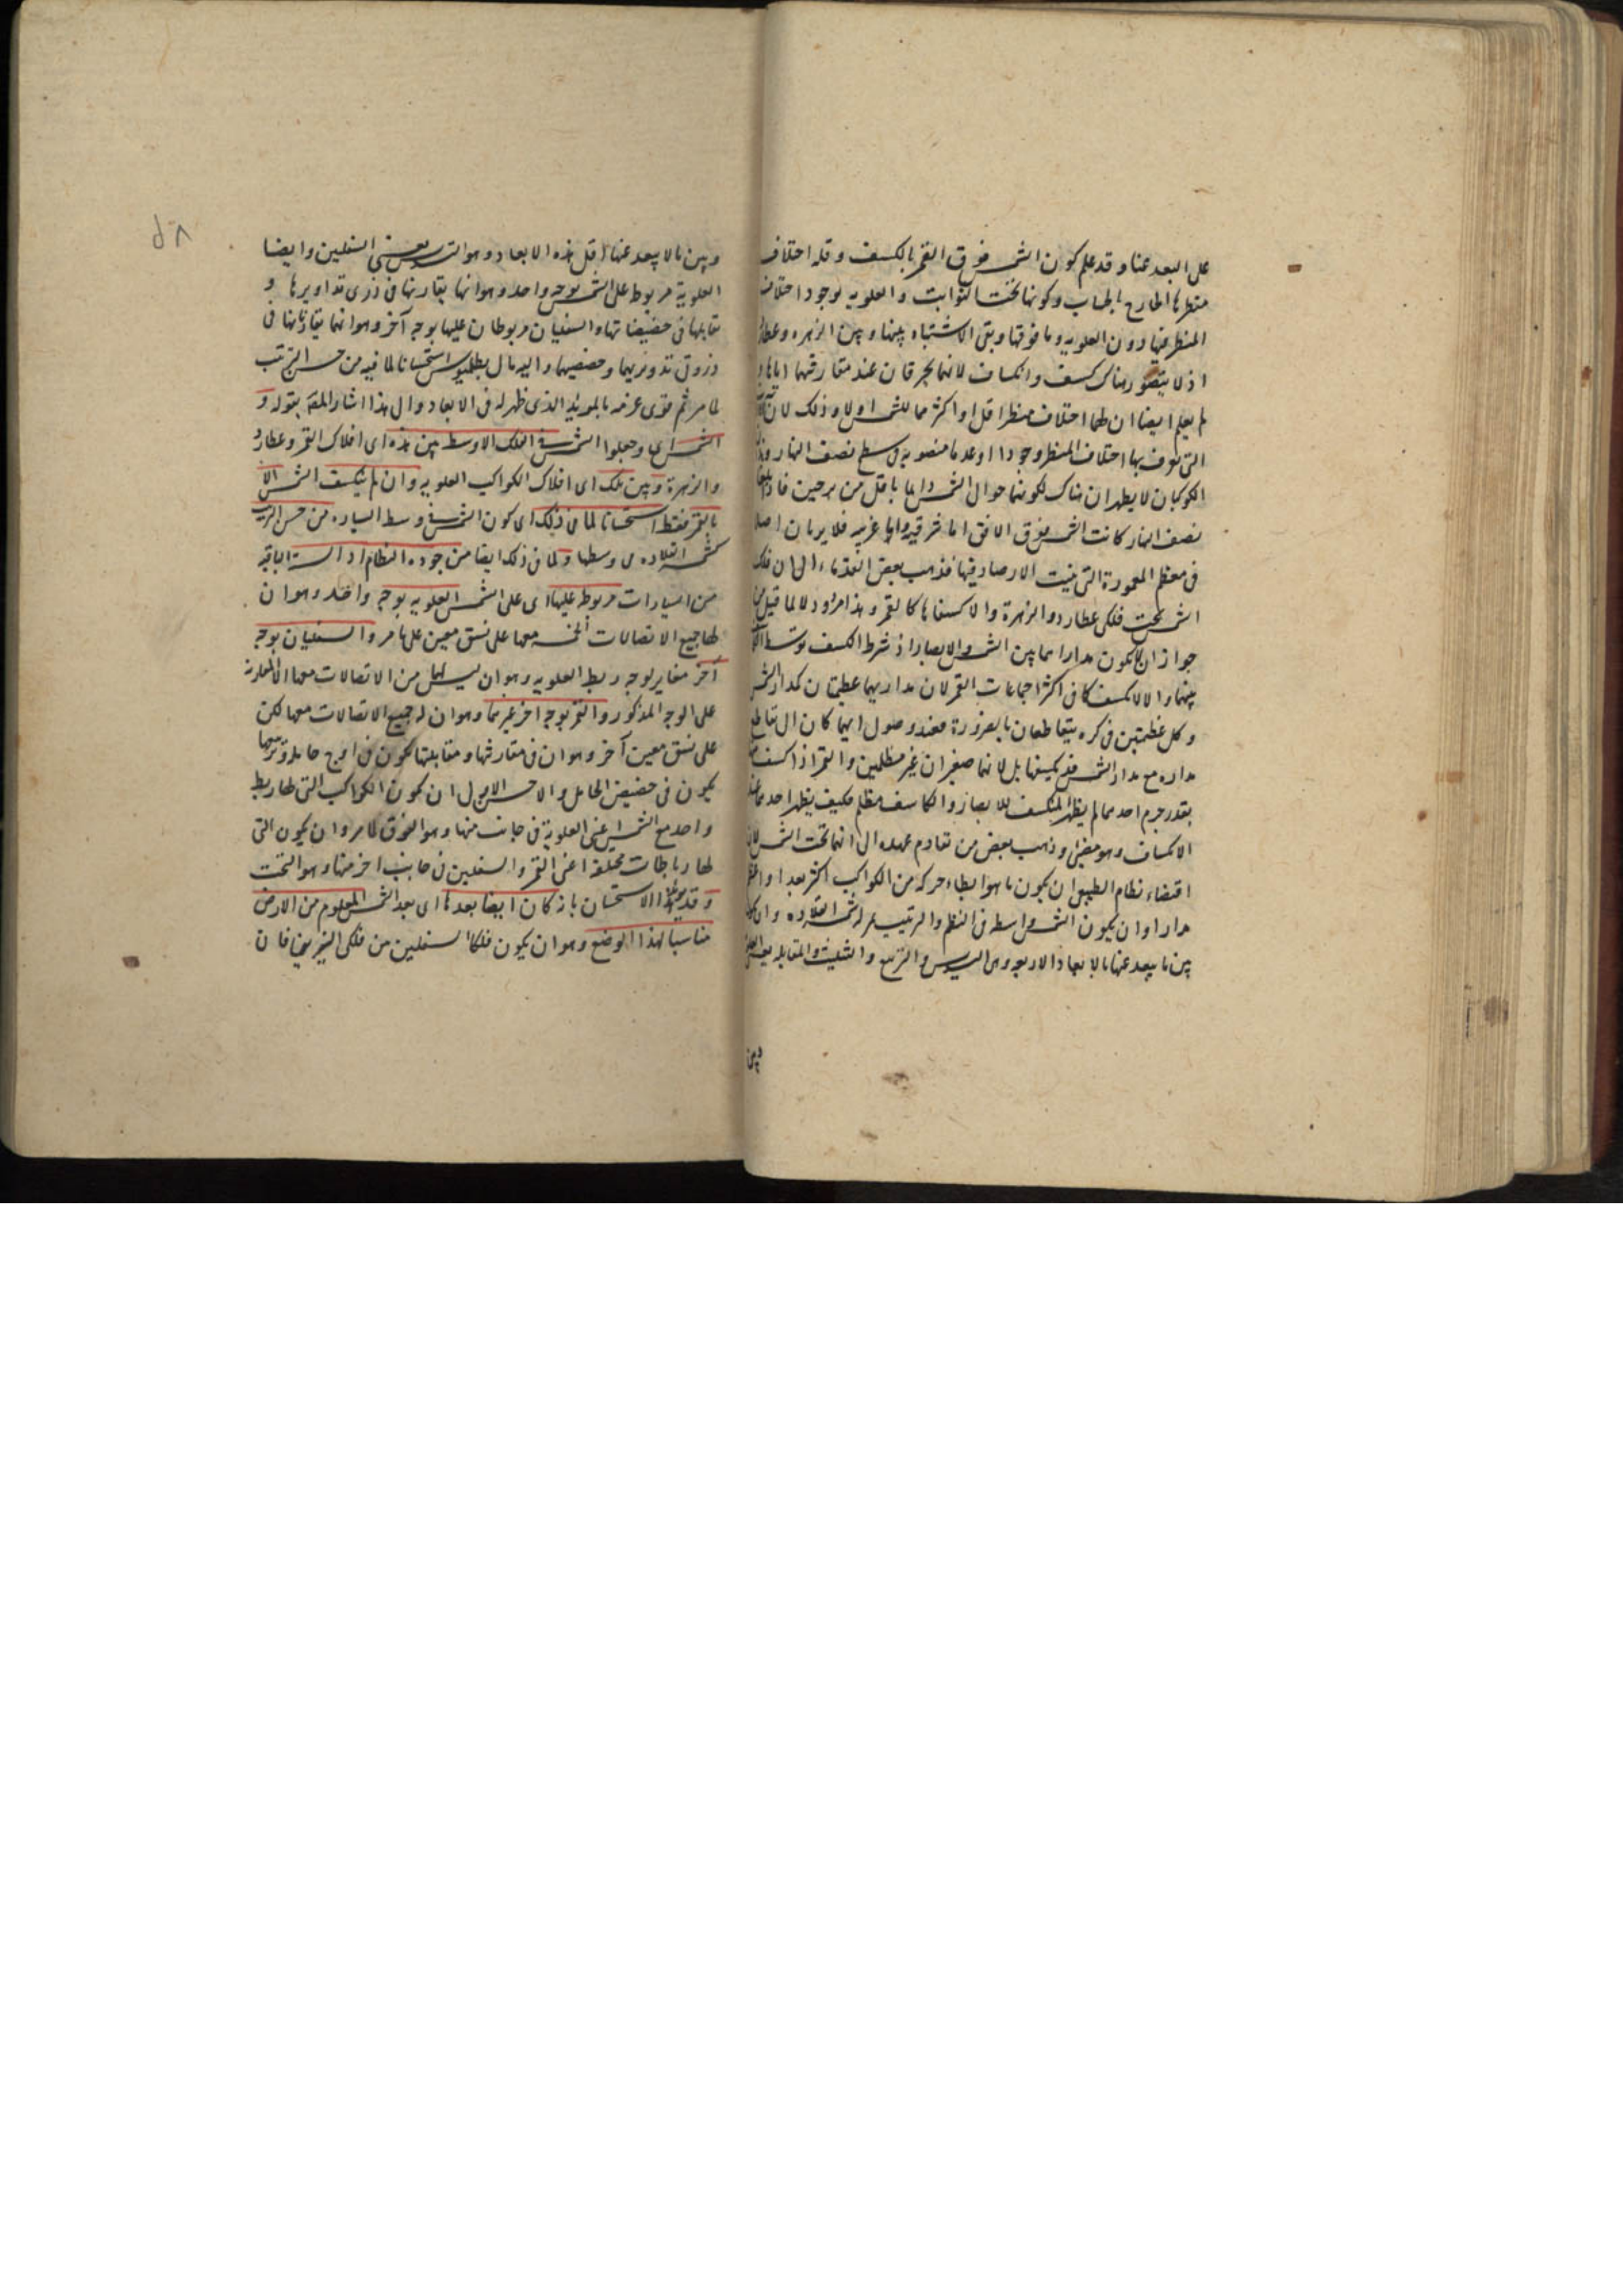 على البعد عنا وقد علم كون الشمس فوق القمر بالكسف وقلة اختلاف
منظرها الخارج بالحساب وكونها تحت الثوابت والعلويه لوجود اختلاف
المنظر فيها دون العلويه وما فوقها وبقى الاشتباه بينها وبين الزهره وعطارد
اذ لا يتصور هناك كسف وانكساف لانهما يحترقان عند مقارنتهما اياها و
لم يعلم ايضا ان لهما اختلاف منظر اقل او اكثر مما للشمس اولا وذلك لان الآلة
التى يعرف بها اختلاف المنظر وجودا او عدما منصوبه فى سطح نصف النهار وهذان
الكوكبان لا يظهران هناك لكونهما حوالى الشمس دايما باقل من برجين فاذا بلغا
نصف النهار كانت الشمس فوق الافق اما شرقيه واما غربيه فلا يريان اصلا
فى معظم المعمورة التى بنيت الارصاد فيها فذهب بعض القدماء الى ان فلك
الشمس تحت فلكى عطارد والزهرة والا كسفاها كالقمر وهذا مردود لا لما قيل من
جواز ان لا يكون مدارا هما بين الشمس والابصار اذ شرط الكسف توسط
بينهما والا لانكسفت فى اكثر اجتماعات القمر لان مداريهما عظيمتان كمدار الشمس
وكل عظيمتين فى كره يتقاطعان بالضرورة فعند وصول ايهما كان الى تقاطع
مداره مع مدار الشمس قد يكسفها بل لانهما صغيران غير مظلمين والقمر اذا كسف منها
بقدر جرم احدهما لم يظهر المنكسف للابصار والكاسف مظلم فكيف يظهر احدهما عند
الانكساف وهو مضئ وذهب بعض من تقادم عهده الى انهما تحت الشمس لان
اقتضاء نظام الطبيعى ان يكون ما هو ابطاء حركه من الكواكب اكثر بعدا واعظم
مدارا وان يكون الشمس واسطه فى النظم والترتيب بمنزله شمسة القلاده وان يكون
بين ما يبعد عنها بالابعاد الاربعه وهى التسديس والتربيع والتثليث والمقابله يعنى العلويه
وبين
٥٨
وبين ما لا يبعد عنها اقل هذه الابعاد وهو التسديس يعنى السفليين وايضا
العلوية مربوط على الشمس بوجه واحد وهو انها يقارنها فى ذرى تداويرها و
تقابلها فى حضيضاتها والسفليان مربوطان عليها بوجه آخر وهو انهما يقارنانها فى
ذروتى تدويريهما وحضيضيهما واليه مال بطلميوس استحسانا لما فيه من حسن الترتيب
لما مر ثم قوى عزمه بالمويد الذى ظهر له فى الابعاد والى هذا اشار المصنف بقوله و
الشمس اى وجعلوا الشمس فى الفلك الاوسط بين هذه اى افلاك القمر وعطارد
والزهرة وبين تلك اى افلاك الكواكب العلويه وان لم ينكسف الشمس الا
بالقمر فقط استحسانا لما فى ذلك اى كون الشمس فى وسط السياره من حسن الترتيب
كشمسة القلاده فى وسطها ولما فى ذلك ايضا من جوده النظام اذ الستة الباقيه
من السيارات مربوط عليها اى على الشمس العلويه بوجه واحد وهو ان
لها جميع الاتصالات الخمسه معها على نسق معين على ما مر والسفليان بوجه
آخر مغاير لوجه ربط العلويه وهو ان ليس لهما من الاتصالات معها الا المقارنه
على الوجه المذكور والقمر بوجه اخر غيرهما وهو ان له جميع الاتصالات معها لكن
على نسق معين آخر وهو ان فى مقارنتها ومقابلتها يكون فى اوج حامله وتربيعيها
يكون فى حضيض الحامل والاحسن الاول ان يكون الكواكب التى لها ربط
واحد مع الشمس اعنى العلوية فى جانب منها وهو الفوق لما مر وان يكون التى
لها رباطات مختلفة اعنى القمر والسفليين فى جانب اخر منها وهو التحت
وقد هذا الاستحسان بان كان ايضا بعدها اى بعد الشمس المعلوم من الارض
مناسبا لهذا الوضع وهو ان يكون فلكا السفليين من فلكى النيرين فان